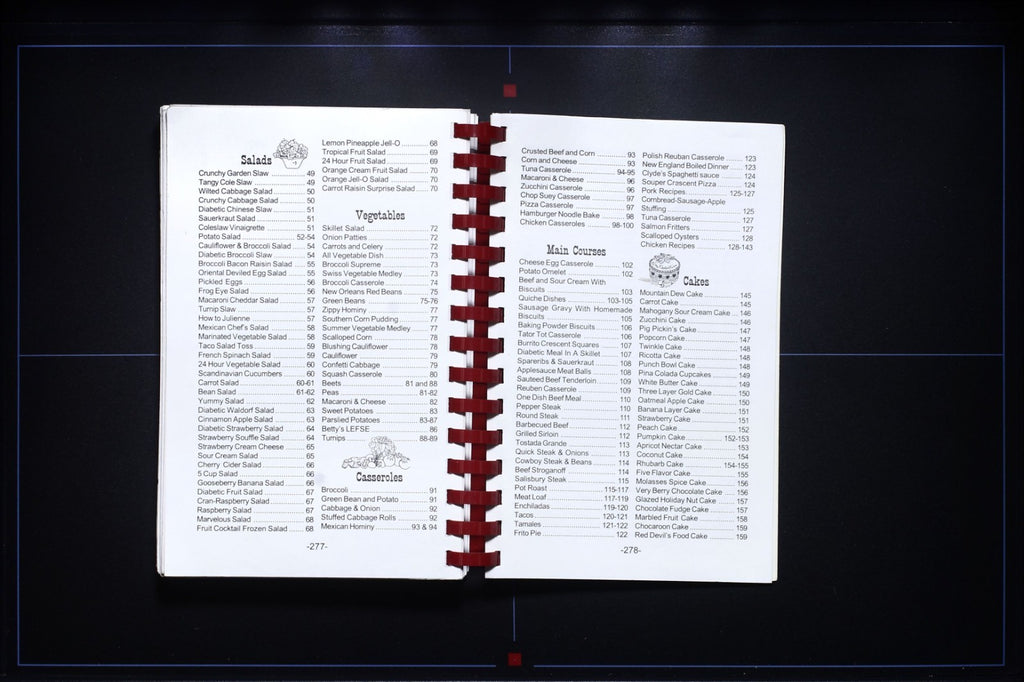 Salads
Crunchy Garden Slaw 49
Tangy Cole Slaw 49
Wilted Cabbage Salad 50
Crunchy Cabbage Salad 50
Diabetic Chinese Slaw 51
Sauerkraut Salad 51
Coleslaw Vinaigrette 51
Potato Salad 52-54
Cauliflower & Broccoli Salad 54
Diabetic Broccoli Slaw 54
Broccoli Bacon Raisin Salad 55
Oriental Deviled Egg Salad 55
Pickled Eggs 56
Frog Eye Salad 56
Macaroni Cheddar Salad 57
Turnip Slaw 57
How to Julienne 57
Mexican Chef's Salad 58
Marinated Vegetable Salad 58
Taco Salad Toss 59
French Spinach Salad 59
24 Hour Vegetable Salad 60
Scandinavian Cucumbers 60
Carrot Salad 60-61
Bean Salad 61-62
Yummy Salad 62
Diabetic Waldorf Salad 63
Cinnamon Apple Salad 63
Diabetic Strawberry Salad 64
Strawberry Souffle Salad 64
Strawberry Cream Cheese 65
Sour Cream Salad 65
Cherry Cider Salad 66
5 Cup Salad 66
Gooseberry Banana Salad 66
Diabetic Fruit Salad 67
Cran-Raspberry Salad 67
Raspberry Salad 67
Marvelous Salad 68
Fruit Cocktail Frozen Salad 68
Lemon Pineapple Jell-O 68
Tropical Fruit Salad 69
24 Hour Fruit Salad 69
Orange Cream Fruit Salad 70
Orange Jell-O Salad 70
Carrot Raisin Surprise Salad 70
Vegetables
Skillet Salad 72
Onion Patties 72
Carrots and Celery 72
All Vegetable Dish 73
Broccoli Supreme 73
Swiss Vegetable Medley 73
Broccoli Casserole 74
New Orleans Red Beans 75
Green Beans 75-76
Zippy Hominy 77
Southern Corn Pudding 77
Summer Vegetable Medley 77
Scalloped Corn 78
Blushing Cauliflower 78
Cauliflower 79
Confetti Cabbage 79
Squash Casserole 80
Beets 81 and 88
Peas 81-82
Macaroni & Cheese 82
Sweet Potatoes 83
Parslied Potatoes 83-87
Betty's LEFSE 86
Turnips 88-89
Casseroles
Broccoli 91
Green Bean and Potato 91
Cabbage & Onion 92
Stuffed Cabbage Rolls 92
Mexican Hominy 93 & 94
-277-
Crusted Beef and Corn 93
Corn and Cheese 93
Tuna Casserole 94-95
Macaroni & Cheese 96
Zucchini Casserole 96
Chop Suey Casserole 97
Pizza Casserole 97
Hamburger Noodle Bake 98
Chicken Casseroles 98-100
Main Courses
Cheese Egg Casserole 102
Potato Omelet 102
Beef and Sour Cream With
Biscuits 103
Quiche Dishes 103-105
Sausage Gravy With Homemade
Biscuits 105
Baking Powder Biscuits 106
Tator Tot Casserole 106
Burrito Crescent Squares 107
Diabetic Meal In A Skillet 107
Spareribs & Sauerkraut 108
Applesauce Meat Balls 108
Sauteed Beef Tenderloin 109
Reuben Casserole 109
One Dish Beef Meal 110
Pepper Steak 110
Round Steak 111
Barbecued Beef 112
Grilled Sirloin 112
Tostada Grande 113
Quick Steak & Onions 113
Cowboy Steak & Beans 114
Beef Stroganoff 114
Salisbury Steak 115
Pot Roast 115-117
Meat Loaf 117-119
Enchiladas 119-120
Tacos 120-121
Tamales 121-122
Frito Pie 122
Polish Reuban Casserole 123
New England Boiled Dinner 123
Clyde's Spaghetti sauce 124
Souper Crescent Pizza 124
Pork Recipes 125-127
Cornbread-Sausage-Apple
Stuffing 125
Tuna Casserole 127
Salmon Fritters 127
Scalloped Oysters 128
Chicken Recipes 128-143
Cakes
Mountain Dew Cake 145
Carrot Cake 145
Mahogany Sour Cream Cake 146
Zucchini Cake 146
Pig Pickin's Cake 147
Popcorn Cake 147
Twinkle Cake 148
Ricotta Cake 148
Punch Bowl Cake 148
Pina Colada Cupcakes 149
White Butter Cake 149
Three Layer Gold Cake 150
Oatmeal Apple Cake 150
Banana Layer Cake 151
Strawberry Cake 151
Peach Cake 152
Pumpkin Cake 152-153
Apricot Nectar Cake 153
Coconut Cake 154
Rhubarb Cake 154-155
Five Flavor Cake 155
Molasses Spice Cake 156
Very Berry Chocolate Cake 156
Glazed Holiday Nut Cake 157
Chocolate Fudge Cake 157
Marbled Fruit Cake 158
Chocaroon Cake 159
Red Devil's Food Cake 159
-278-